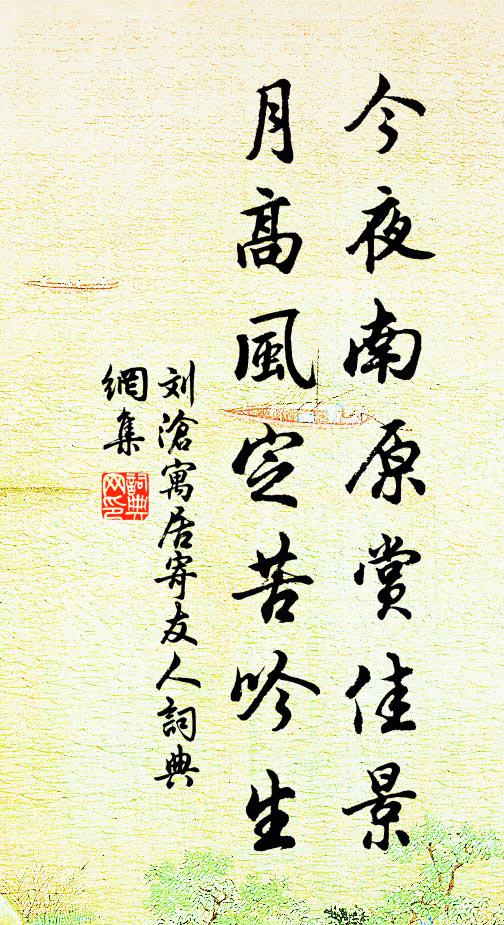 今夜南原賞佳景
月高風定苦吟生
刘滄寓居寄友人詞典
網集
詞典
网印